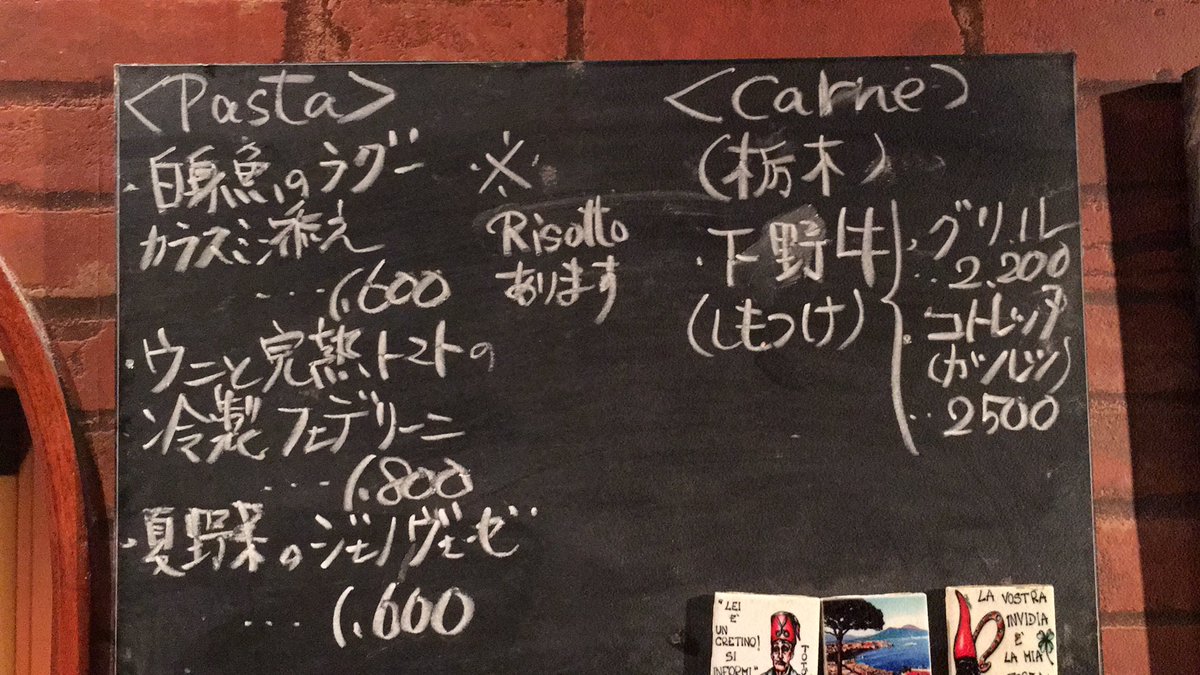 <Pasta>
・白身魚のラグー
カラスミ添え
‥‥1.600
・ウニと完熟トマトの
冷製フェデリーニ
‥‥1.800
・夏野菜のジェノヴェーゼ
‥‥1.600
※
Risotto
あります
<Carne>
(栃木)
・下野牛
(しもつけ)
・グリル
‥2.200
コトレッタ
(ガルレツ)
‥2500
"LEI
E'
UN
CRETINO!
SI
INFORMI"
TOTO'
LA VOSTRA
INVIDIA
E'
LA MIA